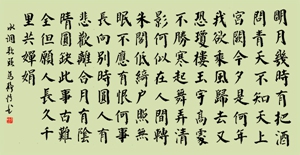 明月幾時有把酒
問青天不知天上
宮闕今夕是何年
我欲乘風歸去又
恐瓊樓玉宇高處
不勝寒起舞弄清
影何似在人間轉
朱閣低綺戶照無
眠不應有恨何事
長向別時圓人有
悲歡離合月有陰
晴圓缺此事古難
全但願人長久千
里共嬋娟
水調歌頭